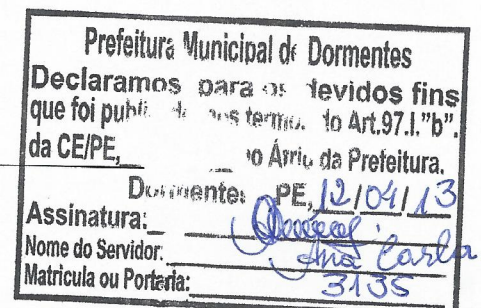 Prefeitura Municipal de Dormentes
Declaramos para os devidos fins
que foi termo do Art.97.I."b".
da CE/PE, no Átrio da Prefeitura.
Dormentes PE, 12/04/13
Assinatura:
Nome do Servidor: Ana Carla
Matricula ou Portaria: 3135